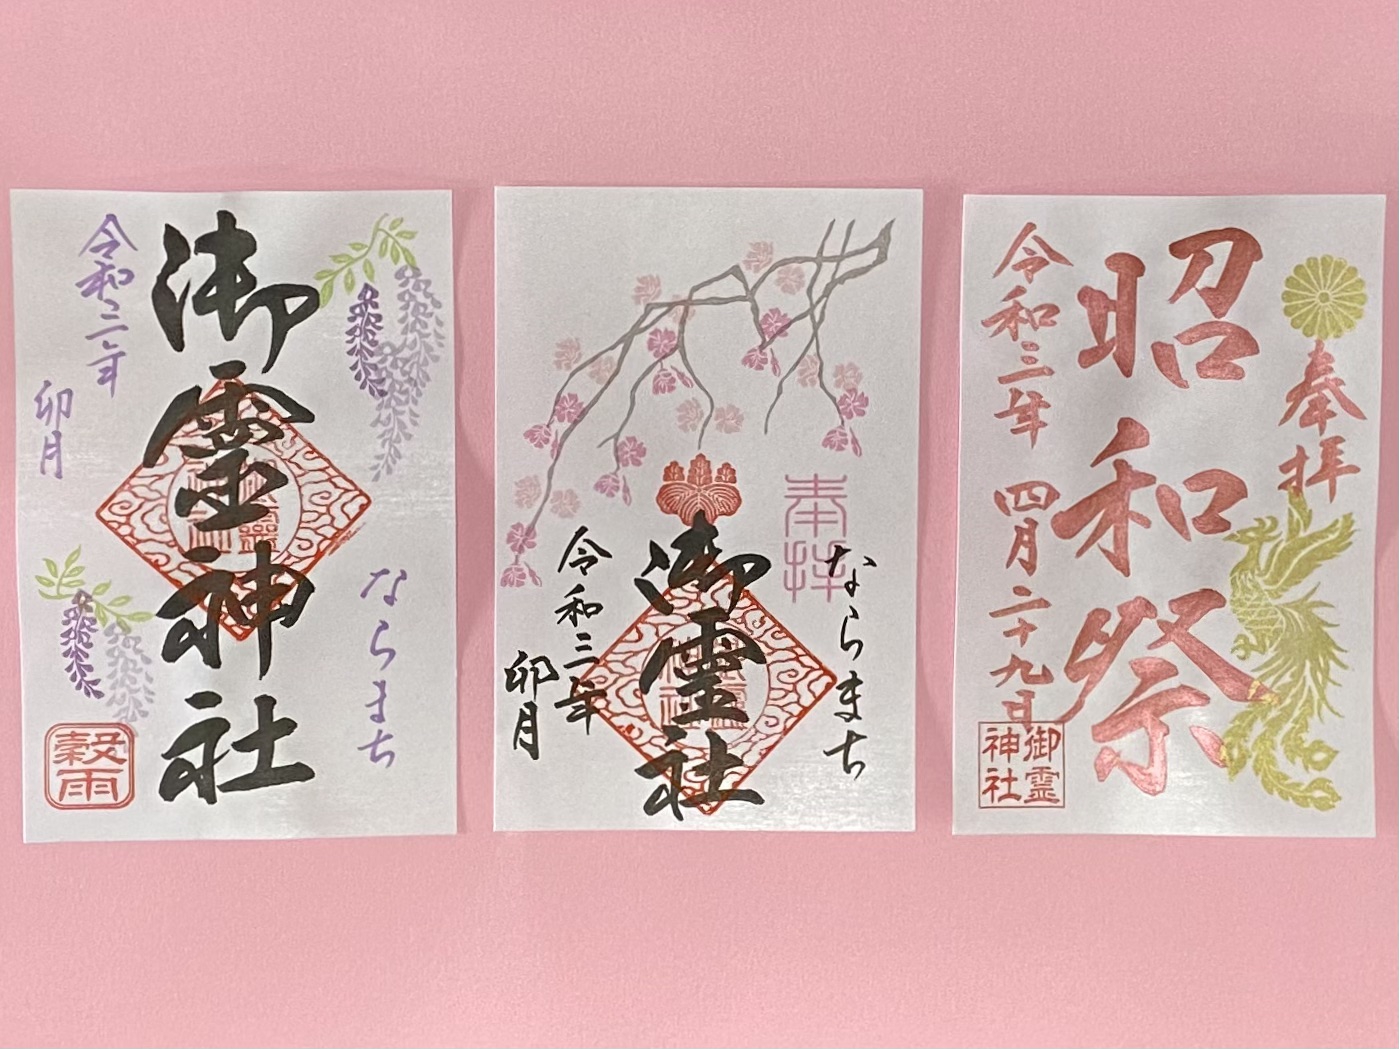 令和三年
卯月
御霊神社
ならまち
穀雨
奉拝
ならまち
御霊社
令和三年
卯月
奉拝
昭和祭
令和三年 四月二十九日
御霊
神社